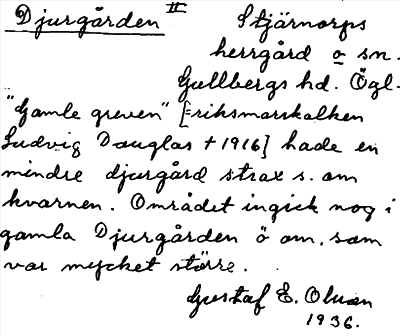 Djurgården II
Stjärnorps
herrgård o sn.
Gullbergs hd. Ögl.
"Gamle greven" [=riksmarskalken
Ludvig Douglas † 1916] hade en
mindre djurgård strax s. om
kvarnen. Området ingick nog i
gamla Djurgården ö om, som
var mycket större.
Gustaf E. Olsson
1936.